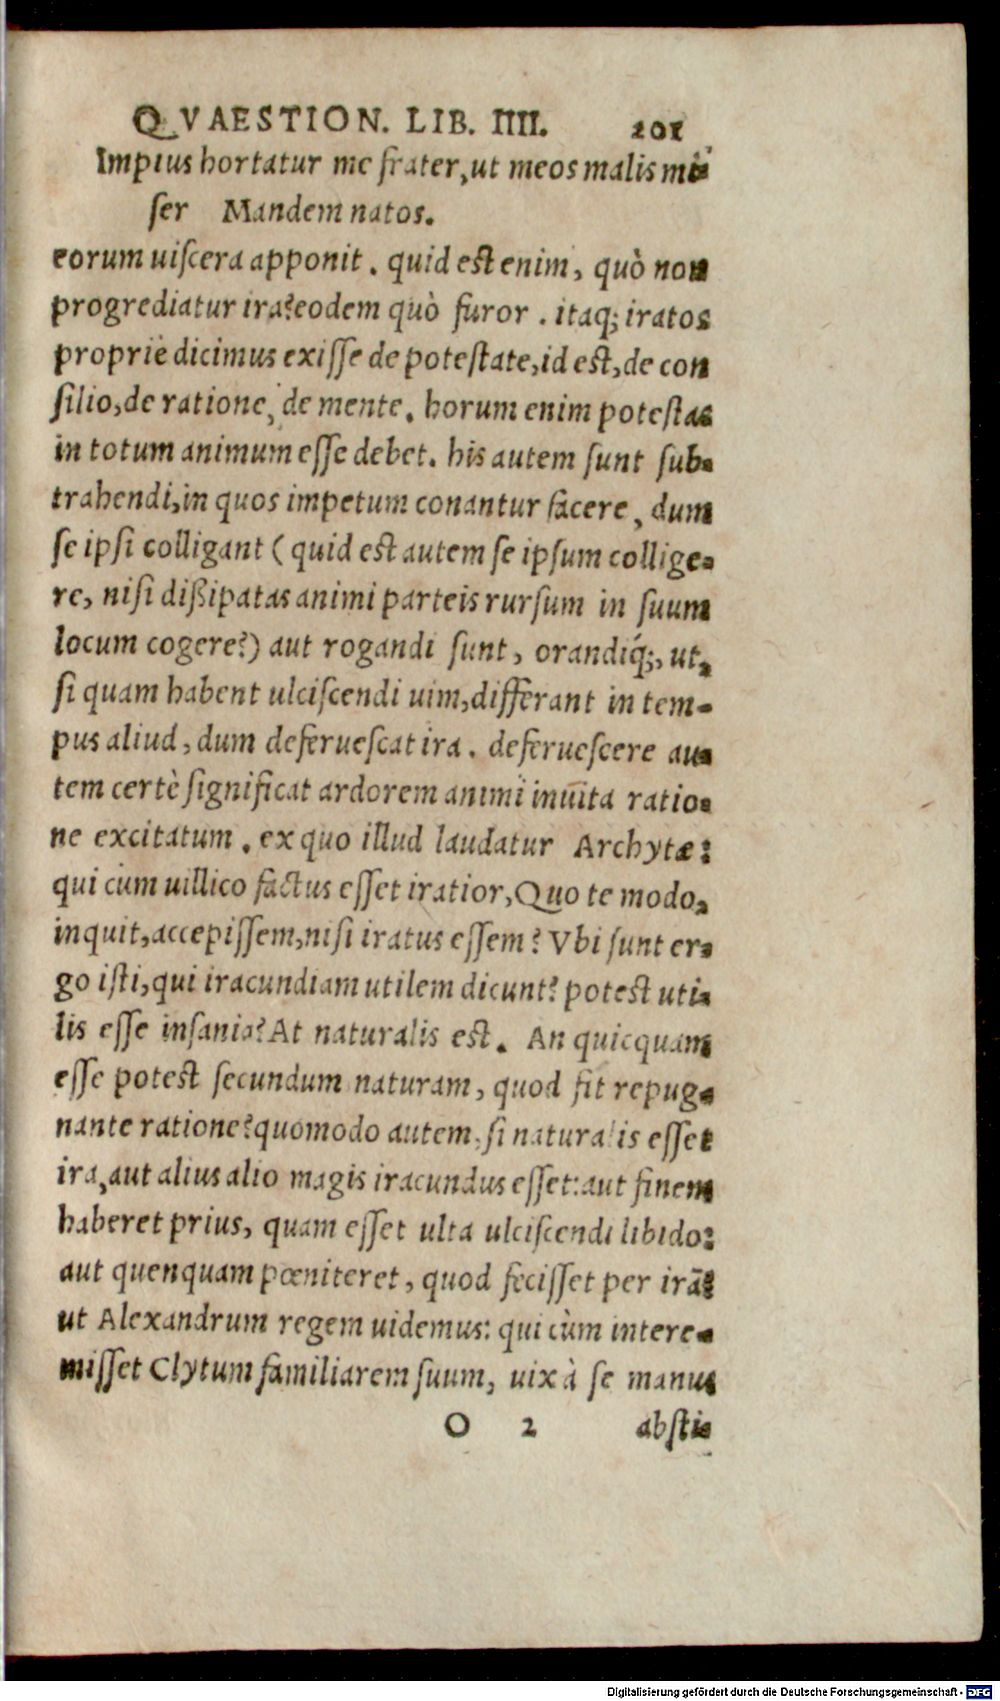 QVAESTION. LIB. IIII. 201
Impius hortatur me frater, ut meos malis mi-
ser Mandem natos.
eorum uiscera apponit. quid est enim, quò non
progrediatur ira? eodem quò furor. itaq; iratos
proprie dicimus exisse de potestate, id est, de con
silio, de ratione, de mente. horum enim potestas
in totum animum esse debet. his autem sunt sub-
trahendi, in quos impetum conantur facere, dum
se ipsi colligant (quid est autem se ipsum collige-
re, nisi dißipatas animi parteis rursum in suum
locum cogere?) aut rogandi sunt, orandiq́;, ut,
si quam habent ulciscendi uim, differant in tem-
pus aliud, dum deferuescat ira. deferuescere au-
tem certè significat ardorem animi inuita ratio-
ne excitatum. ex quo illud laudatur Archytæ:
qui cùm uillico factus esset iratior, Quo te modo,
inquit, accepissem, nisi iratus essem? Vbi sunt er-
go isti, qui iracundiam utilem dicunt? potest uti-
lis esse insania? At naturalis est. An quicquam
esse potest secundum naturam, quod fit repug-
nante ratione? quomodo autem, si naturalis esset
ira, aut alius alio magis iracundus esset: aut finem
haberet prius, quam esset ulta ulciscendi libido:
aut quenquam pœniteret, quod fecisset per irā?
ut Alexandrum regem uidemus: qui cùm intere-
misset Clytum familiarem suum, uix à se manus
O 2 absti-
Digitalisierung gefördert durch die Deutsche Forschungsgemeinschaft - DFG